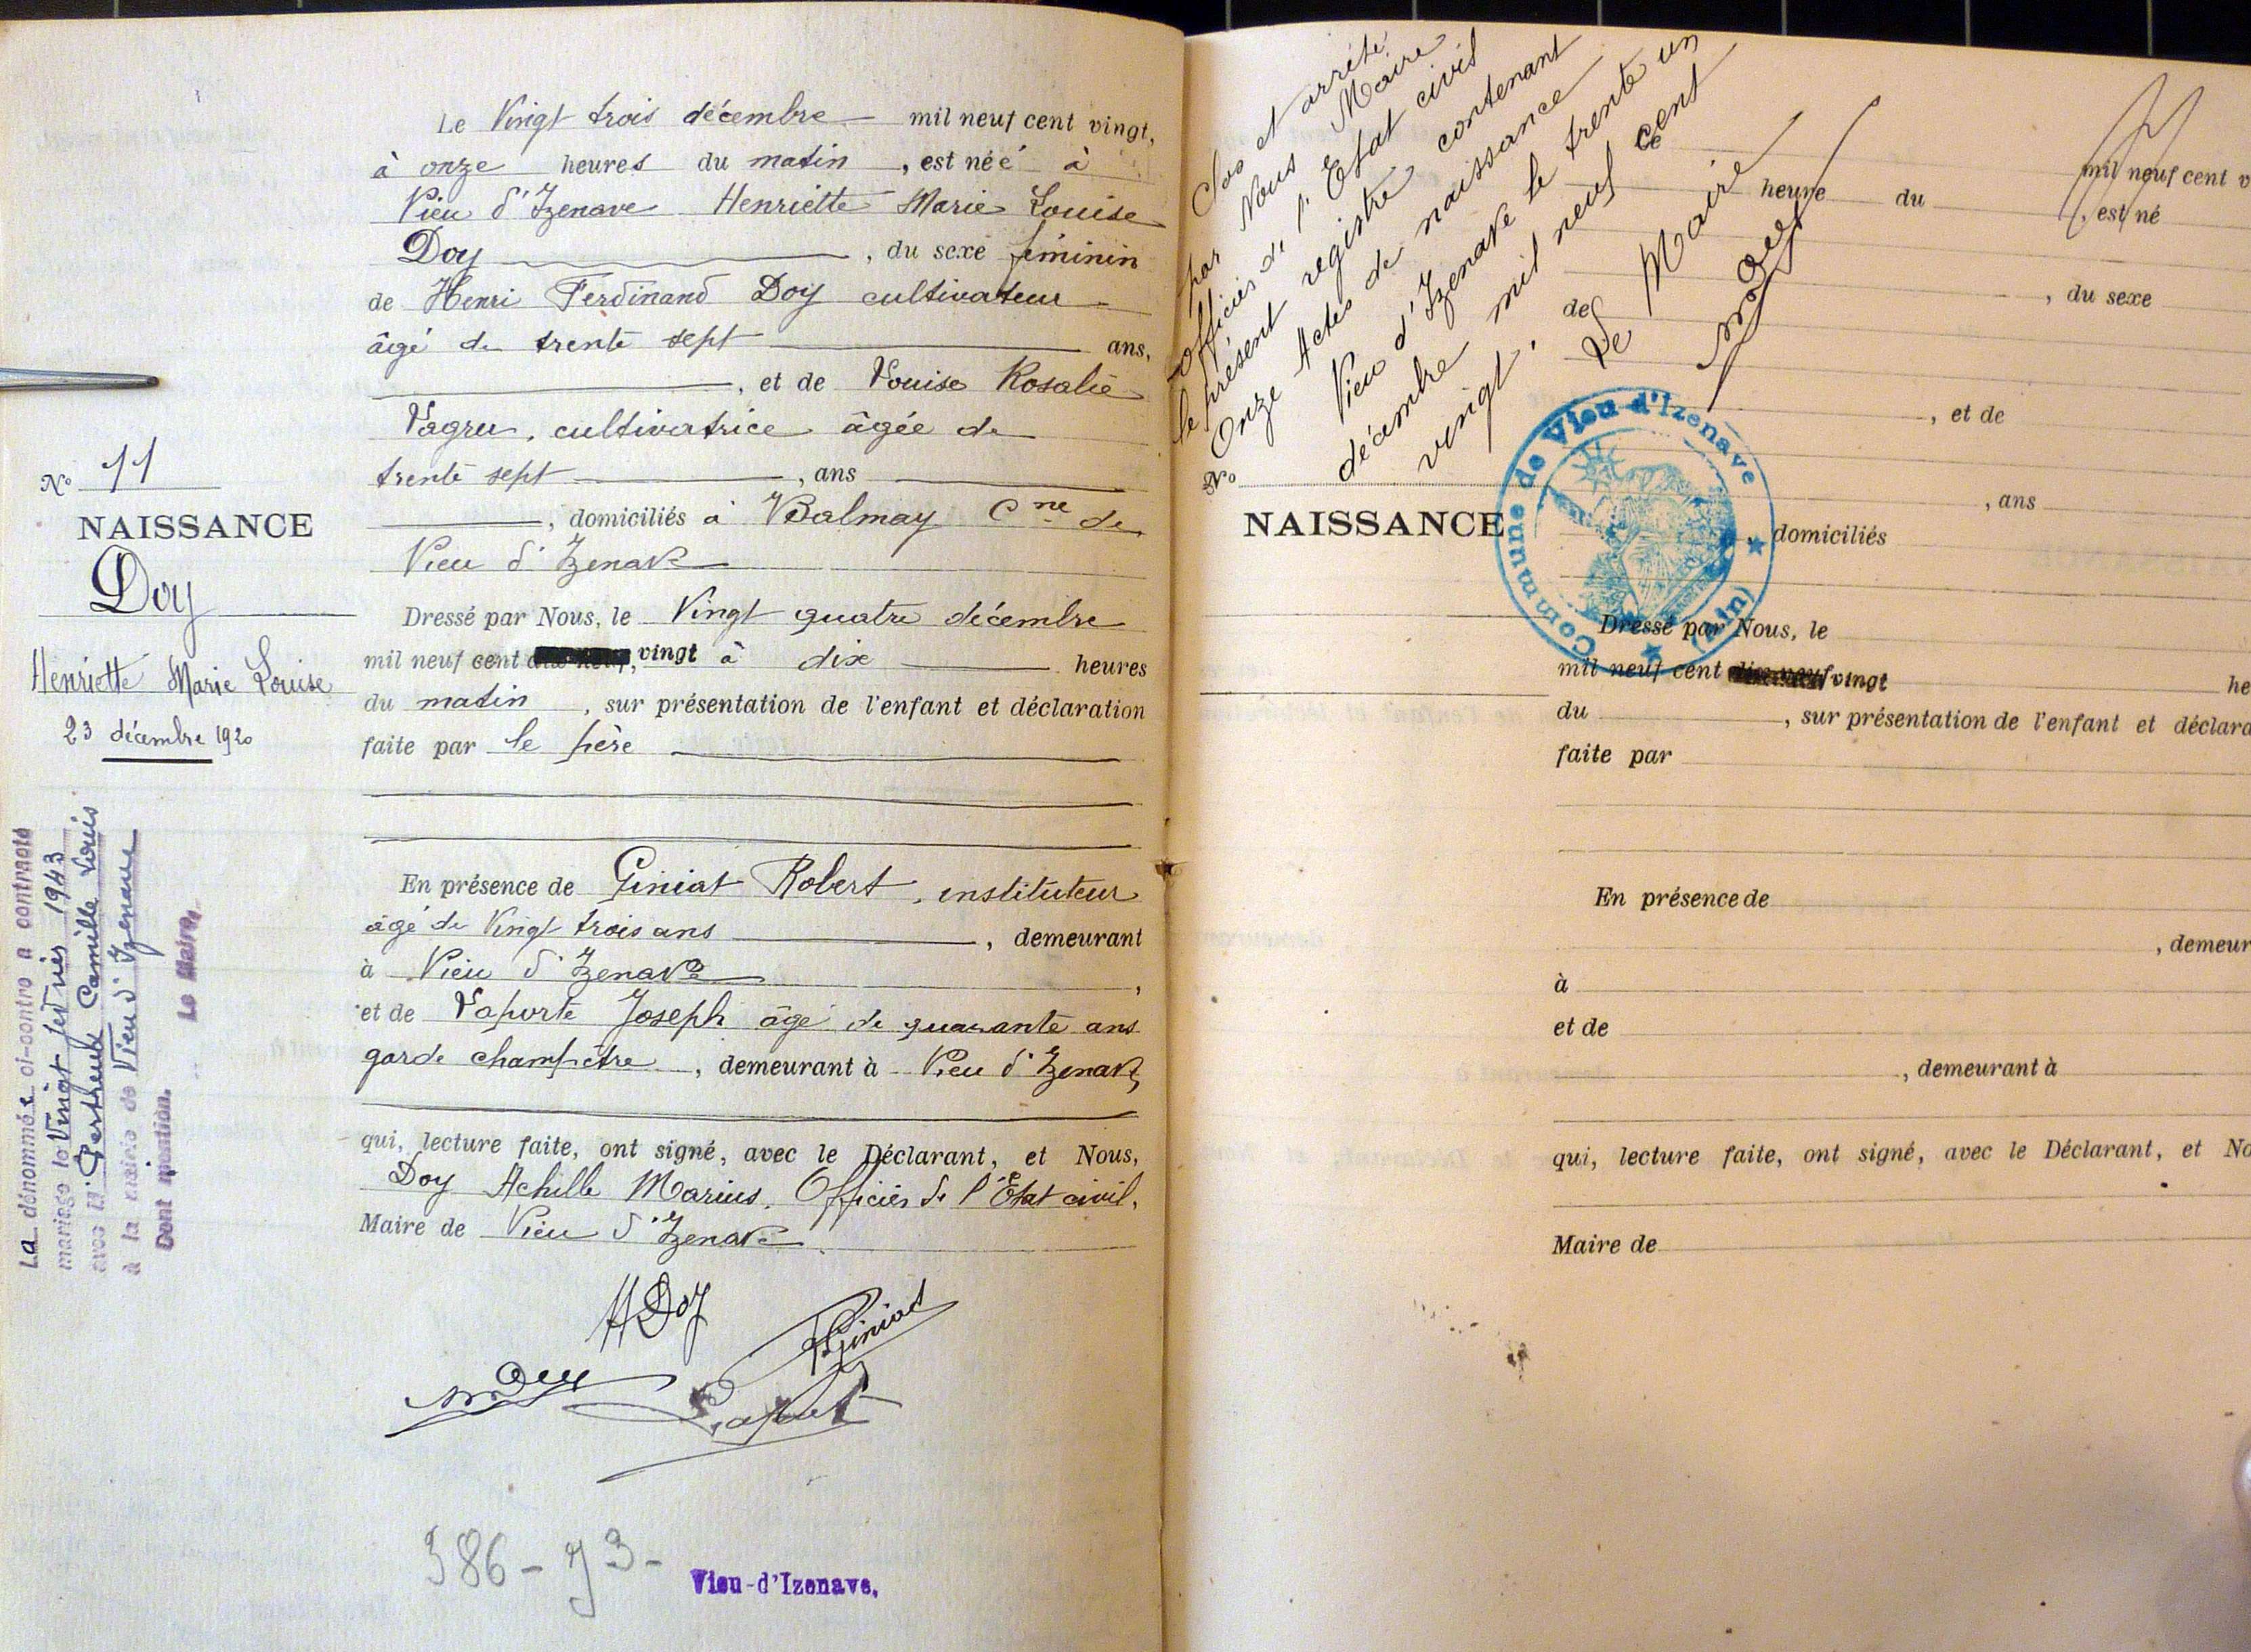 Le Vingt trois décembre mil neuf cent vingt,
à onze heures du matin, est néé à
Vieu d'Izenave Henriette Marie Louise
Doy, du sexe féminin
de Henri Ferdinand Doy cultivateur
âgé de trente sept ans,
, et de Louise Rosalie
Lagru, cultivatrice âgée de
trente sept, ans
, domiciliés à Balmay Cne de
Vieu d'Izenave
Dressé par Nous, le Vingt quatre décembre
mil neuf cent vingt à dix heures
du matin, sur présentation de l'enfant et déclaration
faite par le père
En présence de Giniat Robert, instituteur
âgé de Vingt trois ans, demeurant
à Vieu d'Izenave,
et de Laporte Joseph âgé de quarante ans
garde champêtre, demeurant à Vieu d'Izenave,
qui, lecture faite, ont signé, avec le Déclarant, et Nous,
Doy Achille Marius, Officier de l'Etat civil,
Maire de Vieu d'Izenave
HDoy
RGiniat
M. Doy
Laporte
386-73-
Vieu-d'Izenave.
No 11
NAISSANCE
Doy
Henriette Marie Louise
23 décembre 1920
La dénommée ci-contre a contracté
mariage le Vingt février 1943
avec M. Camille Louis
à la mairie de Vieu d'Izenave
Dont mention. Le Maire,
Clos et arrêté
par Nous Maire
officier de l'Etat civil
le présent registre contenant
Onze Actes de naissance
Vieu d'Izenave le trente un
décembre mil neuf cent
vingt.
Le Maire
M. Doy
Commune de Vieu-d'Izenave
(Ain)
No
NAISSANCE
Le mil neuf cent v
heure du, est né
, du sexe
de
, et de
, ans
, domiciliés
Dressé par Nous, le
mil neuf cent vingt he
du, sur présentation de l'enfant et déclara
faite par
En présence de
, demeur
à
et de
, demeurant à
qui, lecture faite, ont signé, avec le Déclarant, et No
Maire de